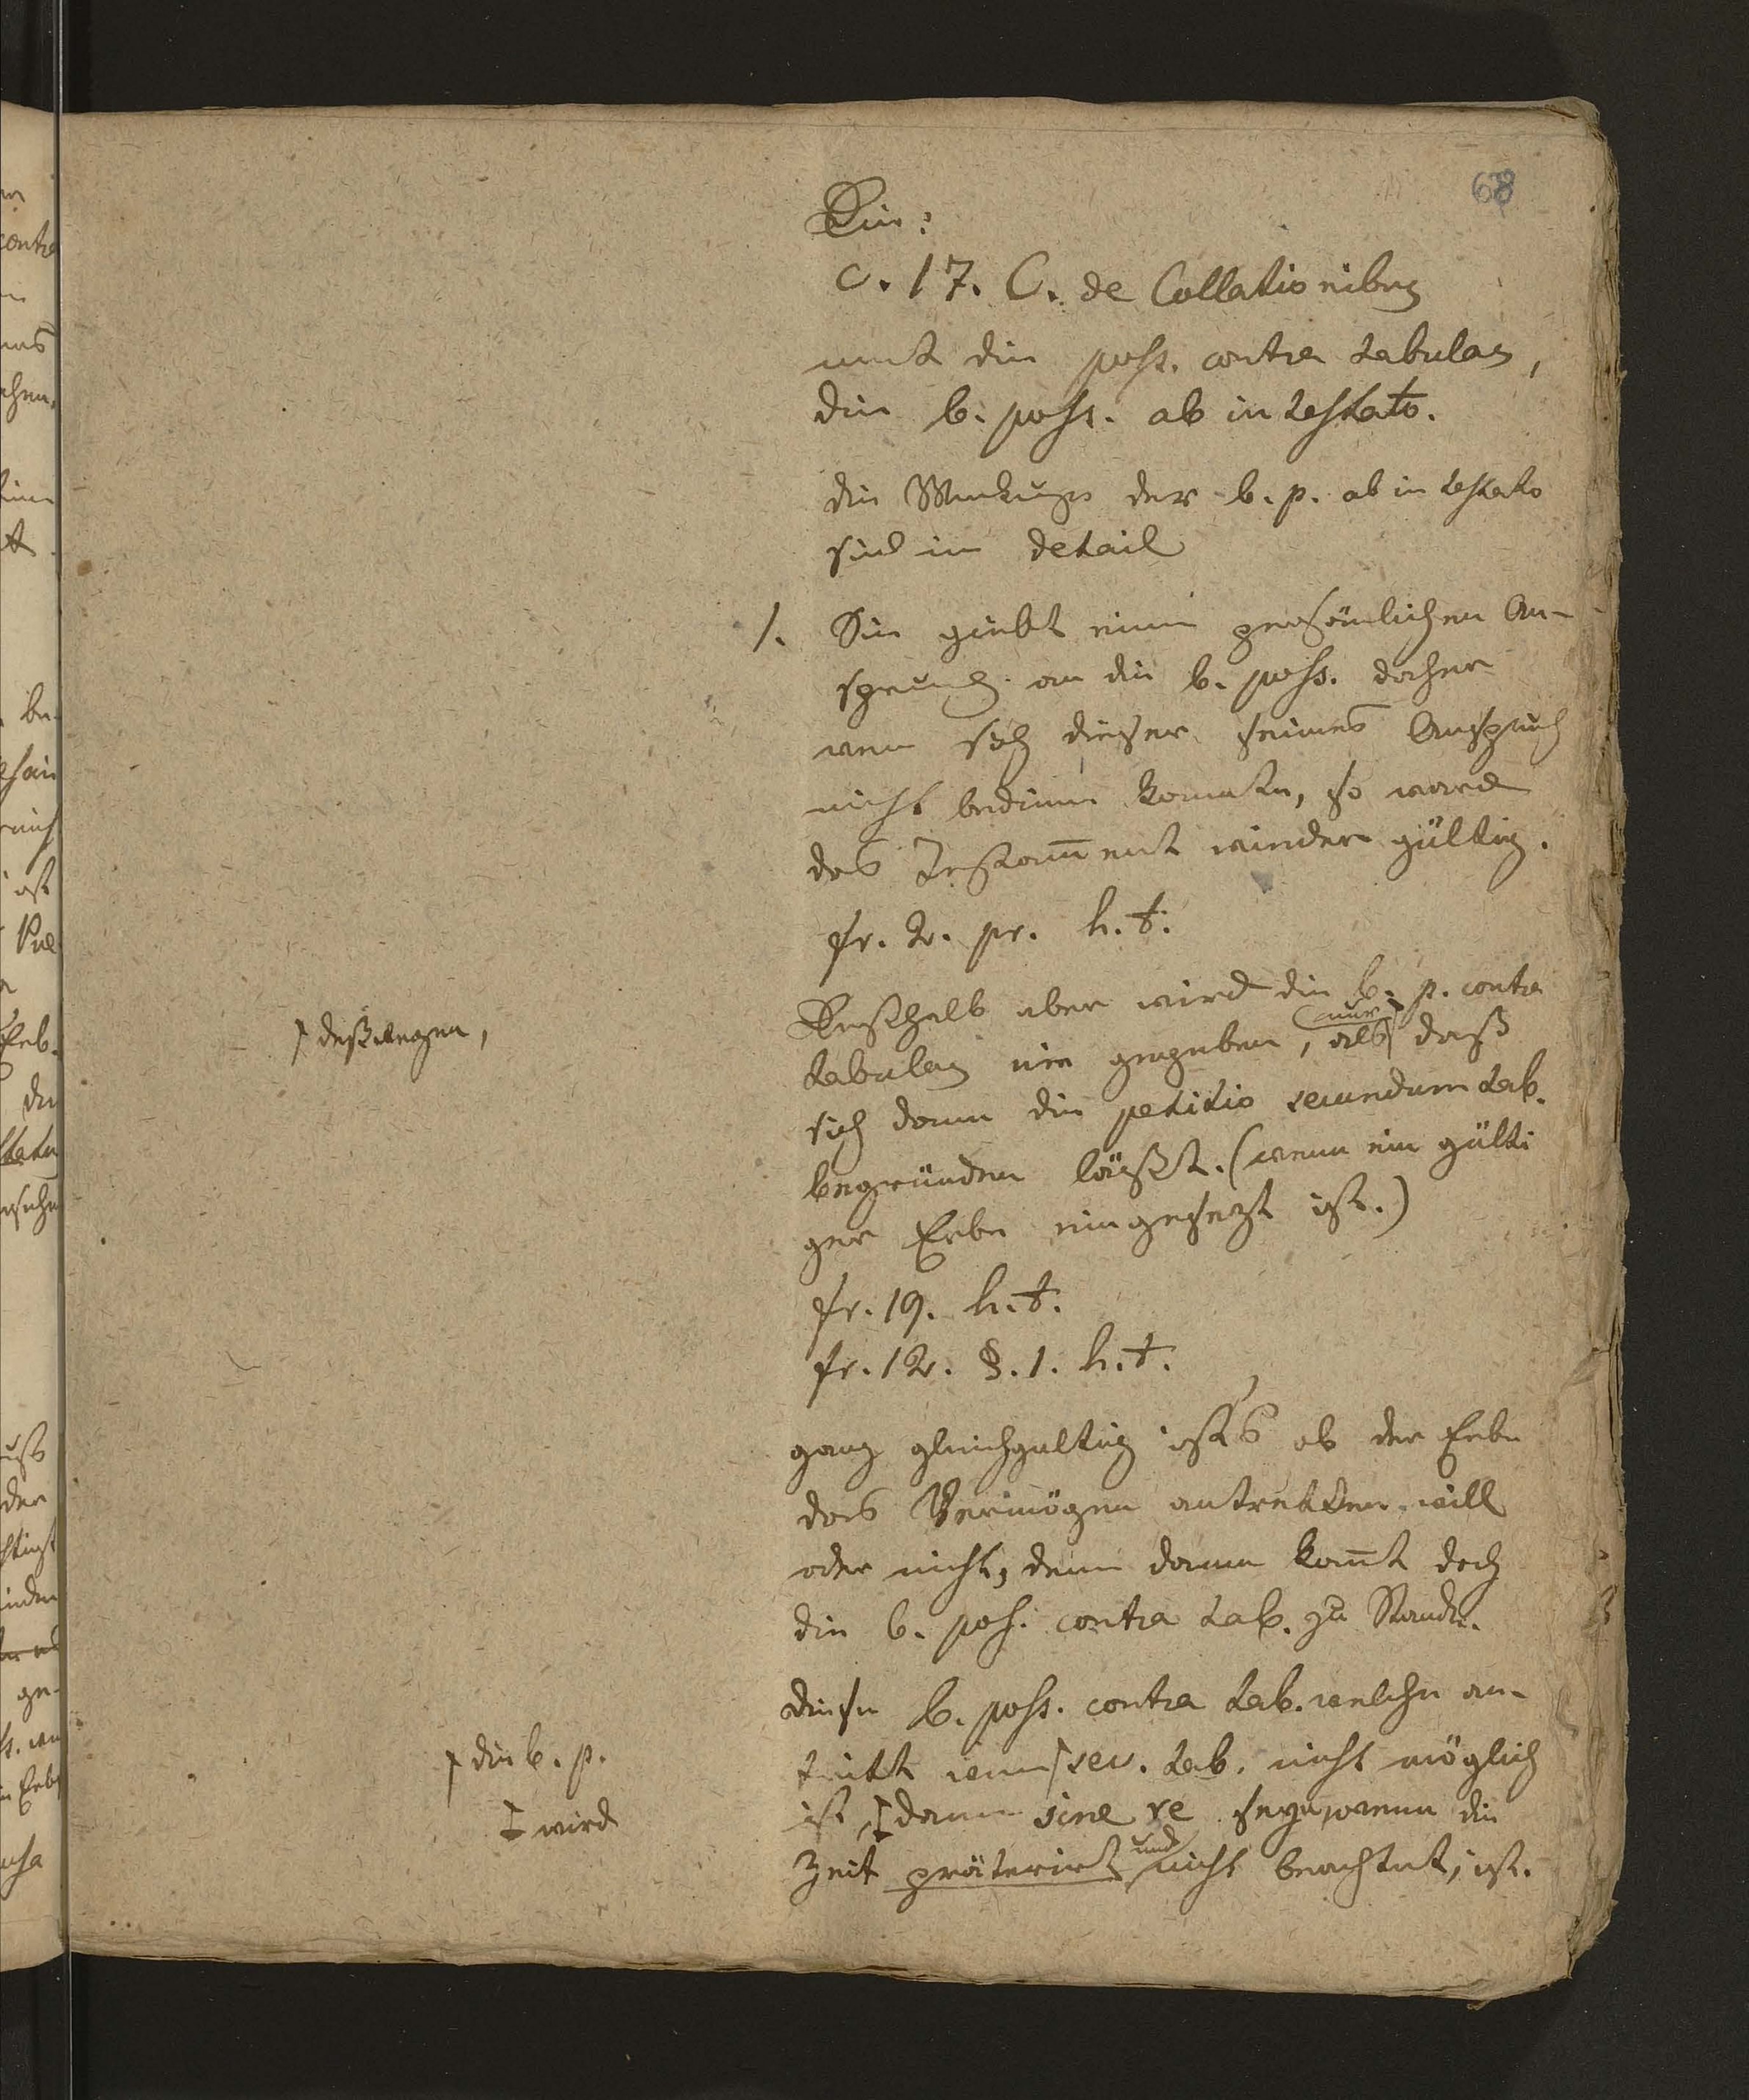 68
Die:
c. 17. C. de Collationibus
nent die poss. contra tabulas,
die b. poss. ab intestato.
die Wirkungen der b. p. ab intestato
sind im detail
1. Sie giebt einen persönlichen An-
spruch an die b. poss. daher
wenn sich dieser seines Anspruch
nicht bedienen konnte, so ward
das Testam̄ent wieder gültig.
fr. 2. pr. h. t.
Deßhalb aber wird die b. p. contra
tabulas nie gegeben, als daß
nur
⌈ deßwegen,
sich dann die petitio secundum tab.
begründen läßt. (wenn ein gülti
ger Erbe eingesezt ist.)
fr. 19. h. t.
fr. 12. §. 1. h. t.
ganz gleichgültig ists ob der Erbe
das Vermögen antretten will
oder nicht, denn dann kom̄t doch
die b. poss. contra tab. zu Stande.
diese b. poss. contra tab. welche an-
⌈ die b. p.
tritt wenn ⌈ sec. tab. nicht möglich
‡ wird
ist, ‡ dann sine re seyn, wenn die
Zeit präterirt und nicht beachtet, ist.